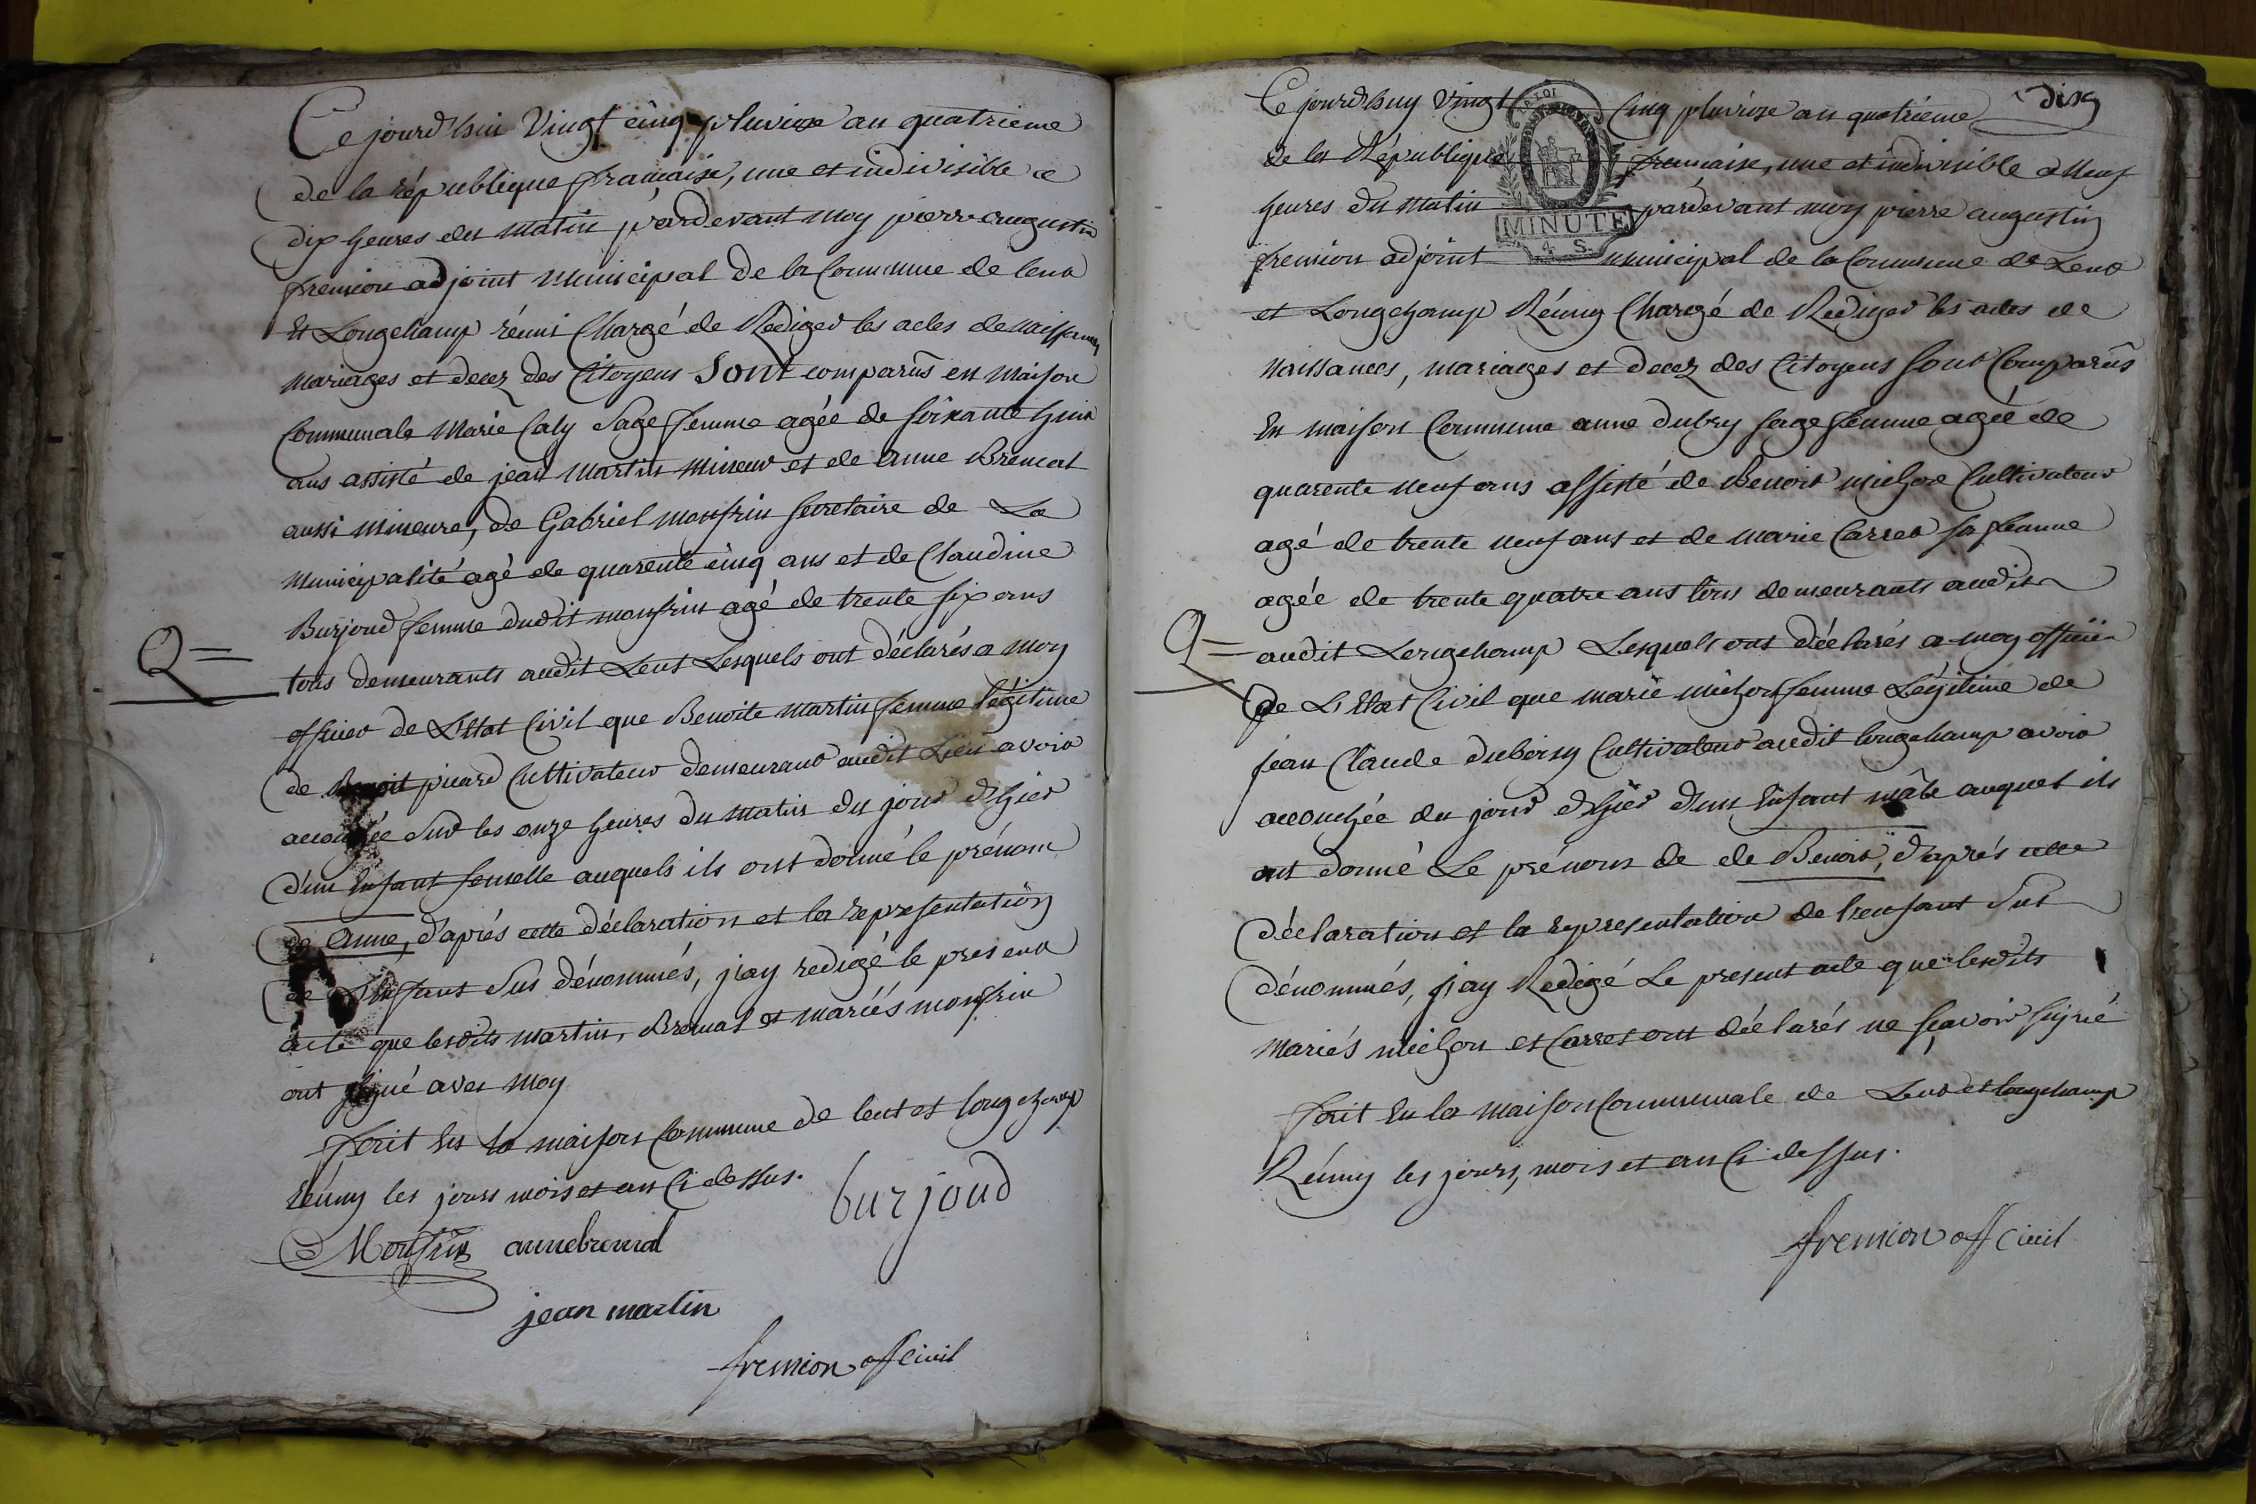 Ce jourd'hui Vingt cinq pluviose an quatrieme
de la république française, une et indivisible a
dix heures du matin pardevant moy pierre augustin
fremion adjoint municipal de la Commune de lent
Et Longchamp réuni Chargé de Rediger les actes de naissances
mariages et decez des Citoyens Sont comparus en maison
Communale Marie Caly Sage femme agée de soixante huit
ans assisté de jean martin mineur et de anne Bremal
aussi mineure, de Gabriel monfrin secretaire de La
municipalité agé de quarente cinq ans et de Claudine
Burjoud femme dudit monfrin agé de trente six ans
tous demeurants audit Lent Lesquels ont déclarés a moy
Q=
officier de L'Etat Civil que Benoite martin femme légitime
de Benoit picard Cultivateur demeurant audit Lieu avoir
accouchée Sur les onze heures du matin du jour d'hier
d'un Enfant femelle auquels ils ont donné le prénom
de anne, d'aprés cette déclaration et la representation
de L'Enfant Sus dénommés, j'ay redigé le present
acte que lesdits martin, Bremal et mariés monfrin
ont signé avec moy
fait En la maison Commune de lent et longchamp
réuny les jours mois et an Ci dessus.
burjoud
Monfrin annebremal
jean martin
fremion off civil
dix
Ce jourd'huy Vingt Cinq pluviose an quatrieme
de la République francaise, une et indivisible a neuf
heures du matin pardevant moy pierre augustin
MINUTE
4. S.
fremion adjoint municipal de la Commune de Lent
et Longchamp Réuny Chargé de Rediger les actes de
naissances, mariages et decez des Citoyens Sont Comparus
En maison Commune anne dubry sage femme agée de
quarente neuf ans assisté de Benoit michon Cultivateur
agé de trente neuf ans et de marie Carret sa femme
agée de trente quatre ans tous demeurants audit
Q=
audit Longchamp Lesquels ont déclarés a moy officier
de L'Etat Civil que marie michon femme Légitime de
jean Claude duboisy Cultivateur audit longchamp avoir
accouchée du jour d'hier d'un Enfant mâle auquel ils
ont donné Le prénom de de Benoit, d'aprés cette
déclaration et la representation de l'enfant Sus
dénommés, j'ay Redigé Le present acte que lesdits
mariés michon et Carret ont déclarés ne sçavoir signé
fait En la maison Communale de Lent et longchamp
Réuny les jours, mois et an Ci dessus.
fremion off civil